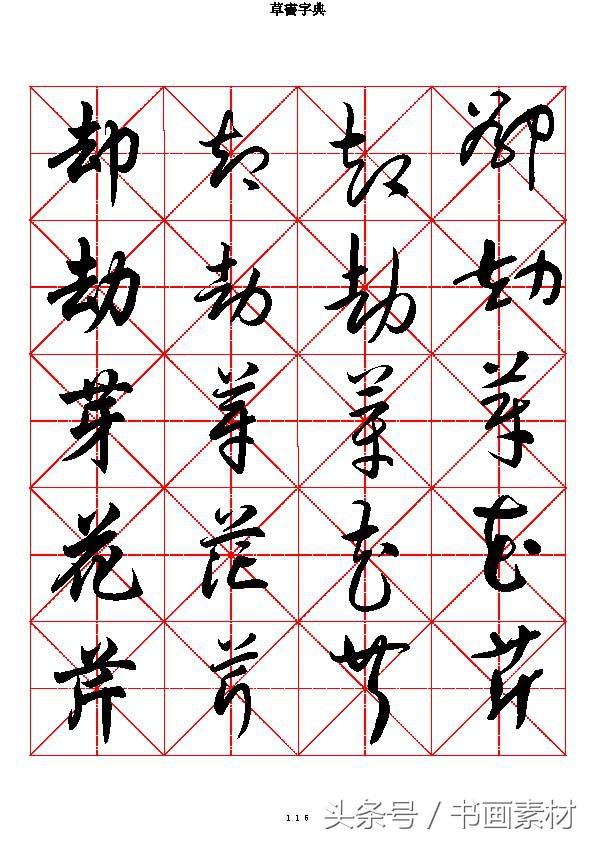 草書字典
却 却 却 卻
劫 劫 劫 劫
芽 芽 芽 芽
花 花 花 花
芹 芹 芹 芹
116
头条号 / 书画素材